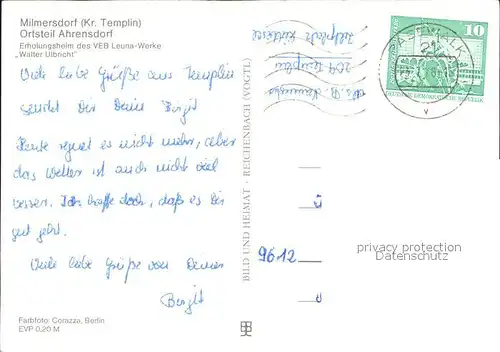 Milmersdorf (Kr. Templin)
Ortsteil Ahrensdorf
Erholungsheim des VEB Leuna-Werke
„Walter Ulbricht"
Viele liebe Grüße aus Templin
sendet Dir Deine Birgit
Heute regnet es nicht mehr, aber
das Wetter ist auch nicht viel
besser. Ich hoffe doch, daß es Dir
gut geht.
Viele liebe Grüße von Deiner
Birgit
Farbfoto: Corazza, Berlin
EVP 0,20 M
BILD UND HEIMAT · REICHENBACH (VOGTL)
209 Templin
10
DEUTSCHE DEMOKRATISCHE REPUBLIK
V
ü
9612
d
privacy protection
Datenschutz